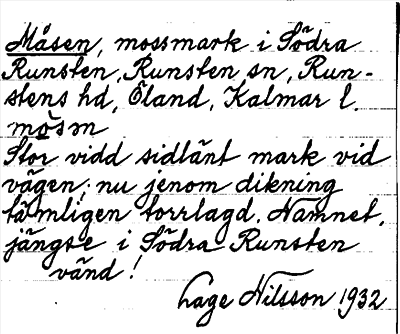 Måsen, mossmark i Södra
Runsten, Runsten sn, Run-
stens hd, Öland, Kalmar l.
mosm
Stor vidd sidlänt mark vid
vägen; nu jenom dikning
tämligen torrlagd. Namnet,
jängse i Södra Runsten
vänd!
Lage Nilsson 1932